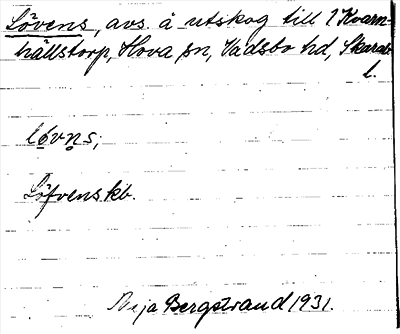 Lövens, avs. å utskog till 1 Kvarn-
hällstorp, Hova sn, Vadsbo hd, Skarab.
l.
lövn̥s;
Löfvens kb.
Bergstrand 1931.